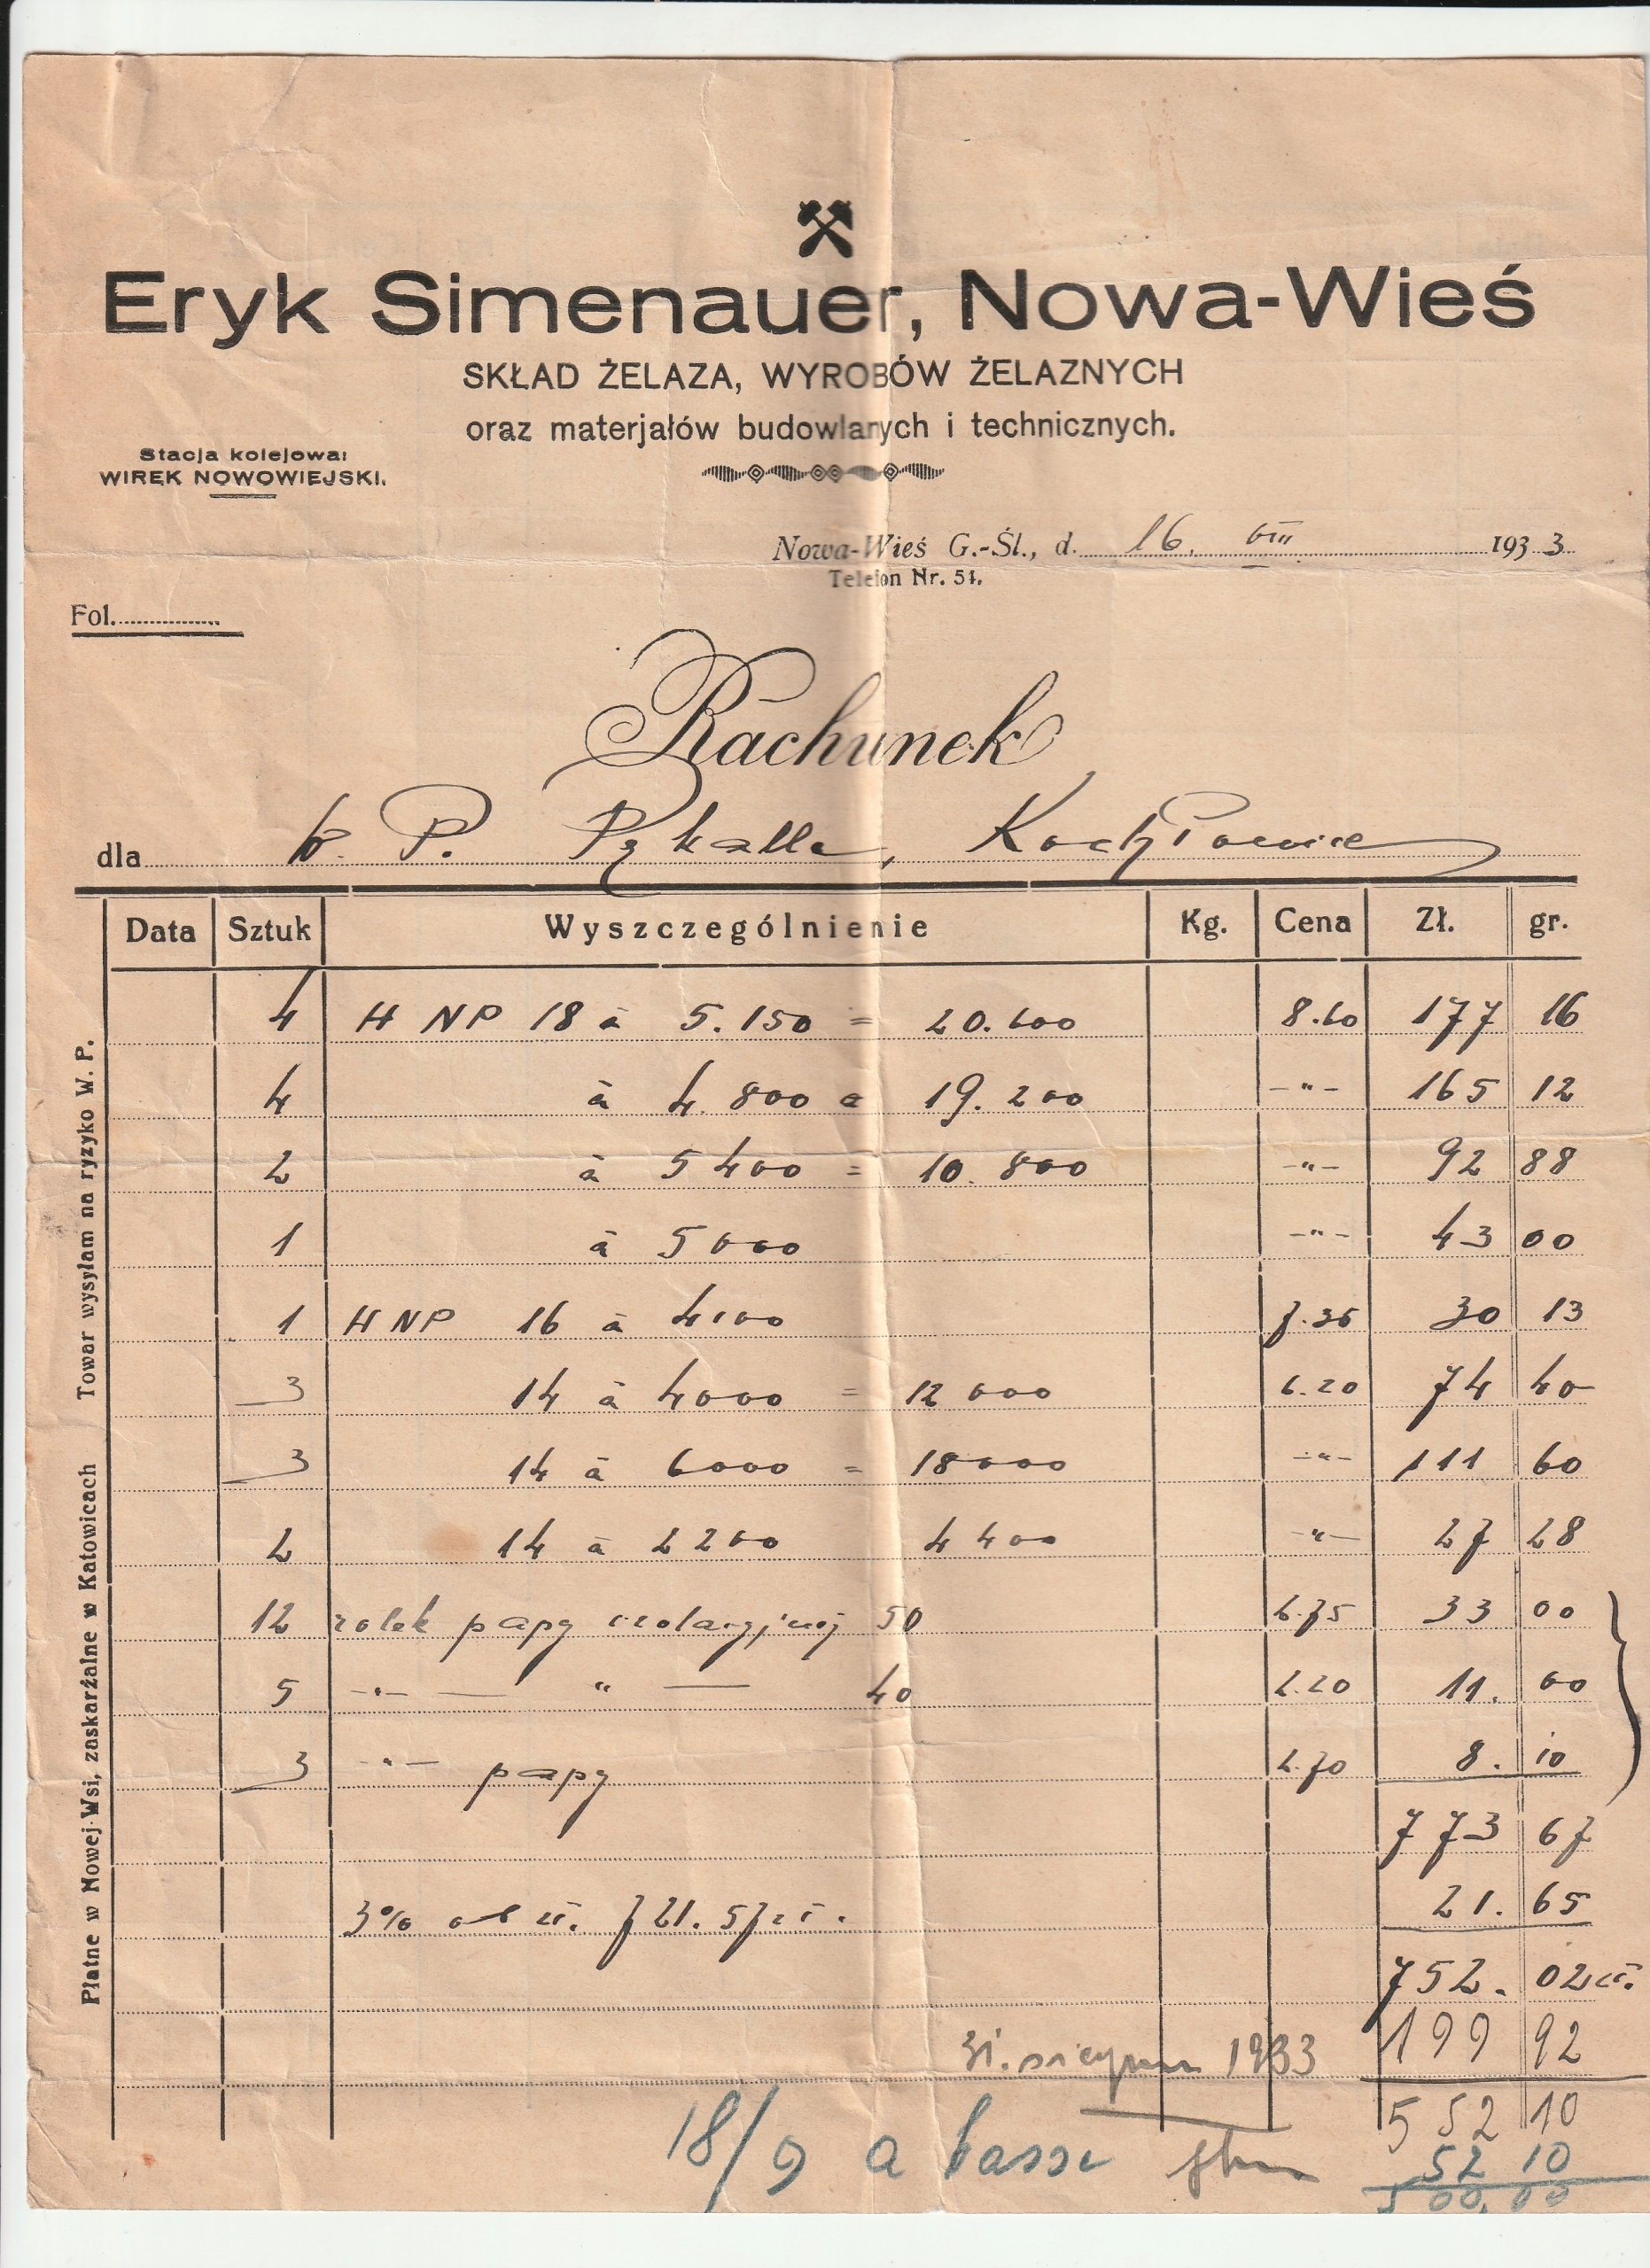 Eryk Simenauer, Nowa-Wieś
SKŁAD ŻELAZA, WYROBÓW ŻELAZNYCH
oraz materjałów budowlanych i technicznych.
Stacja kolejowa:
WIREK NOWOWIEJSKI.
Nowa-Wieś G.-Śl., d. 16. VIII 1933
Telefon Nr. 51.
Fol.
Rachunek
dla W. P. Pykalla, Kochłowice
Data Sztuk Wyszczególnienie Kg. Cena Zł. gr.
4 H NP 18 à 5.150 = 20.600 8.60 177 16
4 à 4.800 = 19.200 -"- 165 12
2 à 5400 = 10.800 -"- 92 88
1 à 5000 -"- 43 00
1 H NP 16 à 4100 7.35 30 13
3 14 à 4000 = 12000 6.20 74 40
3 14 à 6000 = 18000 -"- 111 60
2 14 à 2200 4400 -"- 27 28
12 rolek papy izolacyjnej 50 2.75 33 00
5 -"- — " — 40 2.20 11. 00
3 -"- papy 2.70 8. 10
773 67
3% od zł. 721.57 zł. 21. 65
752. 02 zł.
31. sierpnia 1933 199 92
552 10
18/9 a kasse 52 10
500.00
Towar wysyłam na ryzyko W. P.
Płatne w Nowej-Wsi, zaskarżalne w Katowicach